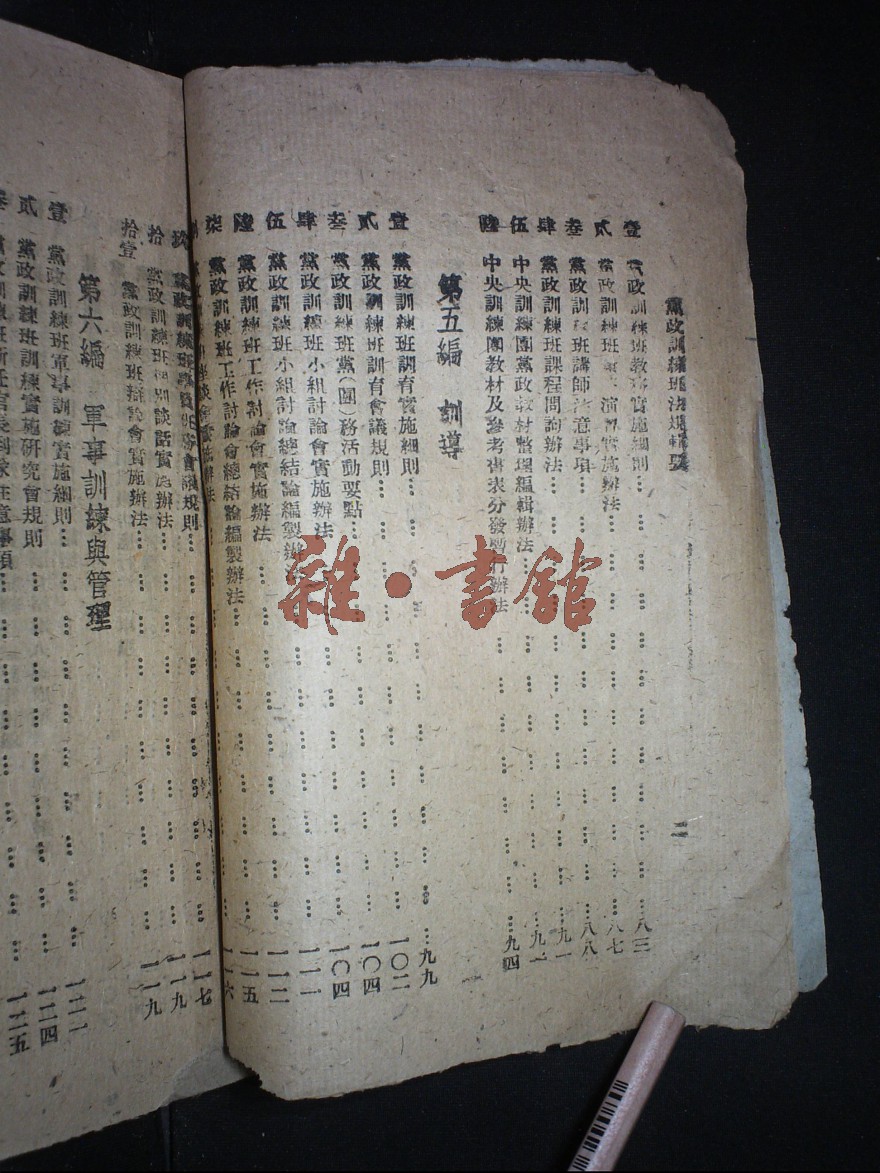 黨政訓練班法規輯要
二
壹 黨政訓練班教務實施細則……八三
貳 黨政訓練班 演習實施辦法……八七
叁 黨政訓 班講師 意事項……八八
肆 黨政訓練班課程問詢辦法……九一
伍 中央訓練團黨政教材整理編輯辦法……九
陸 中央訓練團教材及參考書表分發暫行辦法……九四
第五編 訓導
壹 黨政訓練班訓育實施細則……九九
貳 黨政訓練班訓育會議規則……一〇二
叁 黨政訓練班黨(團)務活動要點……一〇四
肆 黨政訓練班小組討論會實施辦法……一〇四
伍 黨政訓練班小組討論總結論編製辦法……一一一
陸 黨政訓練班工作討論會實施辦法……一一二
柒 黨政訓練班工作討論會總結論編製辦法……一一五
談會實施辦法……一一六
玖 黨政訓練班 會議規則……一一七
拾 黨政訓練班 別談話實施辦法……一一九
拾壹 黨政訓練班辯論會實施辦法……一一九
第六編 軍事訓練與管理
壹 黨政訓練班軍事訓練實施細則……一二一
貳 黨政訓練班訓練實施研究會規則……一二四
叁 黨政訓練班 任官長 注意事項……一二五
雜·書館